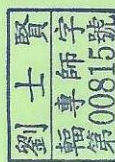 劉士賢
輻專師字
第00815號